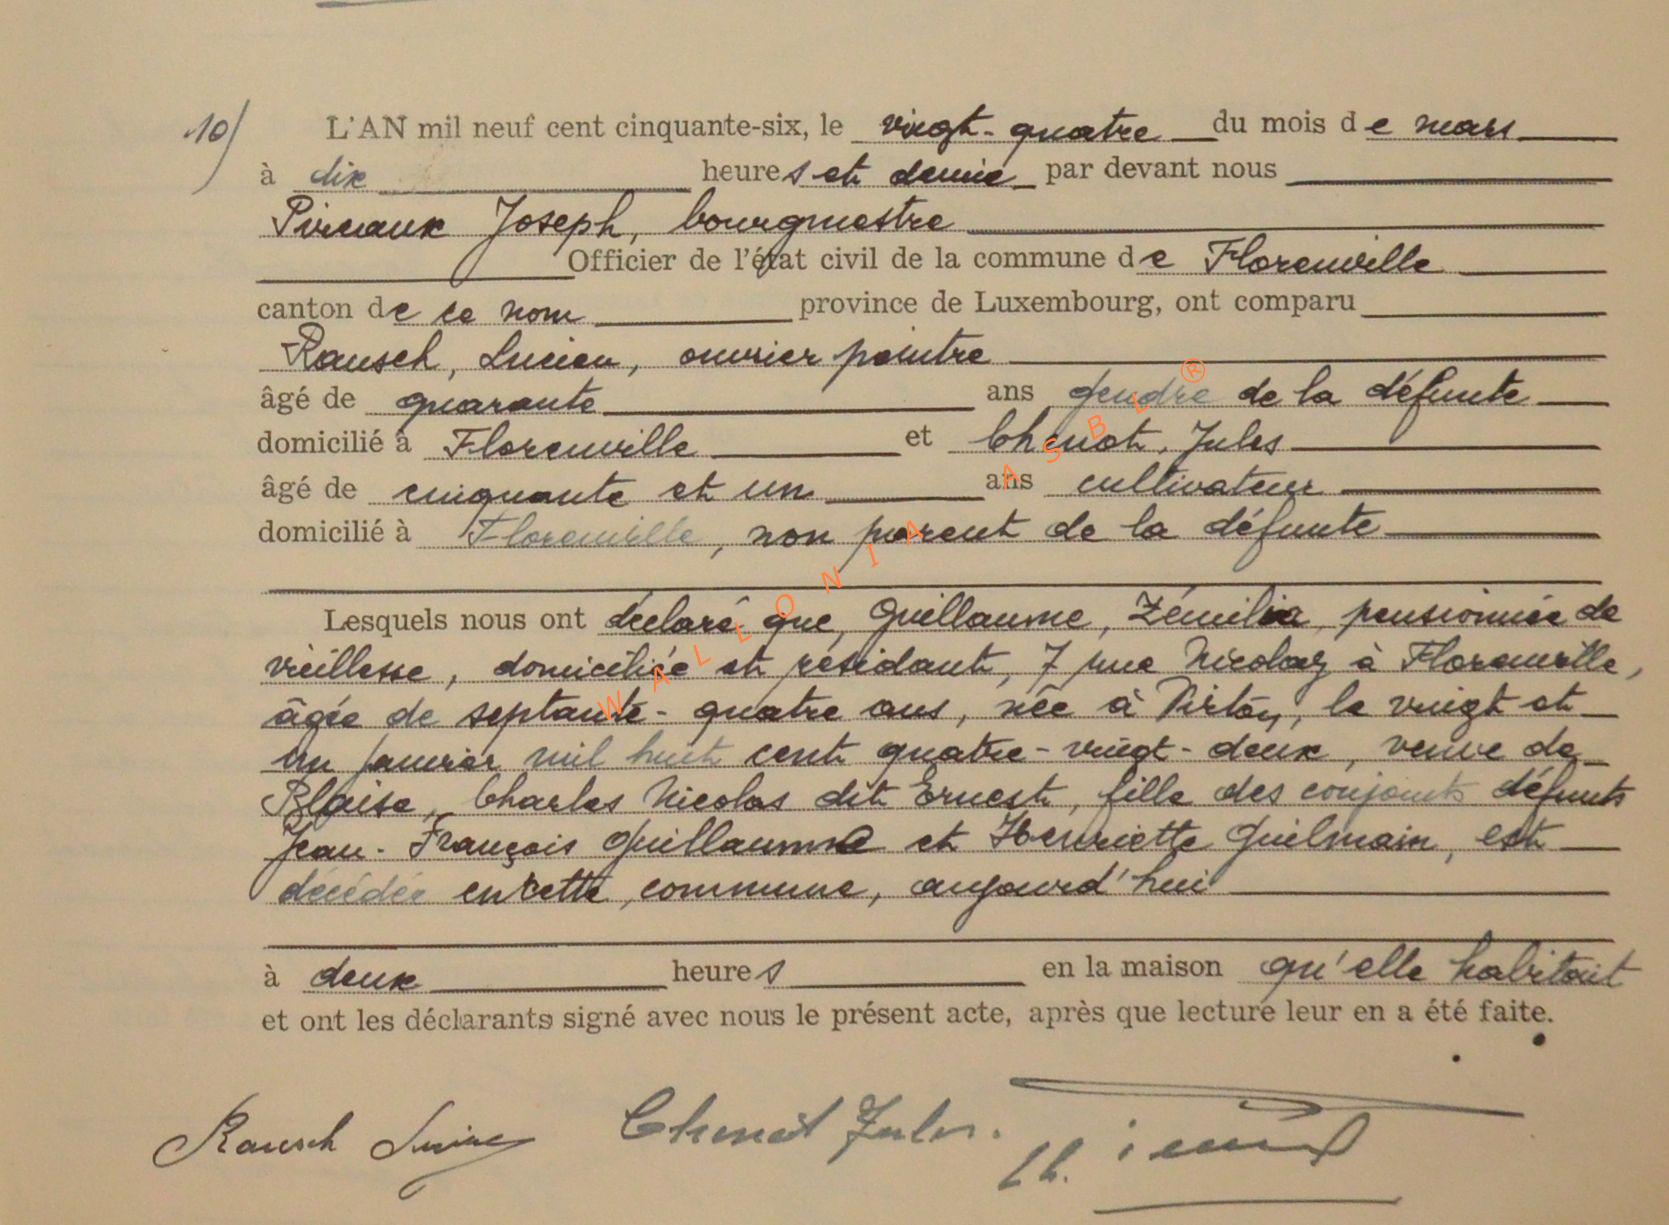 10/ L'AN mil neuf cent cinquante-six, le vingt-quatre du mois de mars
à dix heures et demie par devant nous
Pireaux Joseph, bourgmestre
Officier de l'état civil de la commune de Florenville
canton de ce nom province de Luxembourg, ont comparu
Rausch, Lucien, ouvrier peintre
âgé de quarante ans gendre de la défunte
domicilié à Florenville et Chenot, Jules
âgé de cinquante et un ans cultivateur
domicilié à Florenville, non parent de la défunte
Lesquels nous ont déclaré que, Guillaume, Zémilia, pensionnée de
vieillesse, domiciliée et résidant, 7 rue Nicolay à Florenville,
âgée de septante-quatre ans, née à Virton, le vingt et
un janvier mil huit cent quatre-vingt-deux, veuve de
Blaise, Charles Nicolas dit Ernest, fille des conjoints défunts
Jean-François Guillaume et Henriette Guelmain, est
décédée en cette commune, aujourd'hui
à deux heures en la maison qu'elle habitait
et ont les déclarants signé avec nous le présent acte, après que lecture leur en a été faite.
Rausch Lucien Chenot Jules.
WALLONIA ASBL ®